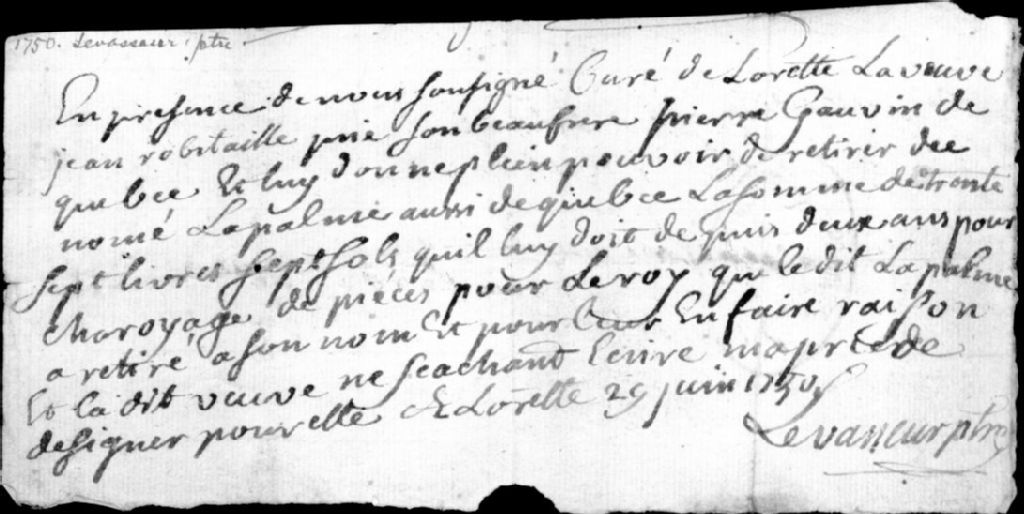 1750. Levasseur ptre
En presence de nous soussigné Curé de Lorette La veuve
jean robitaille prie son beaufrere pierre Gauvin de
quebec Et luy donne plein pouvoir de retirer du
nomé Lapalme aussi de quebec La somme de trente
sept livres sept sols qu'il luy doit de puis deux ans pour
charoyage de piéces pour Le roy que le dit Lapalme
a retiré a son nom Et pour leur En faire raison
Et la dit veuve ne scachant Ecrire m'a prié de
designer pour elle A Lorette 29 juin 1750
Levasseur ptre